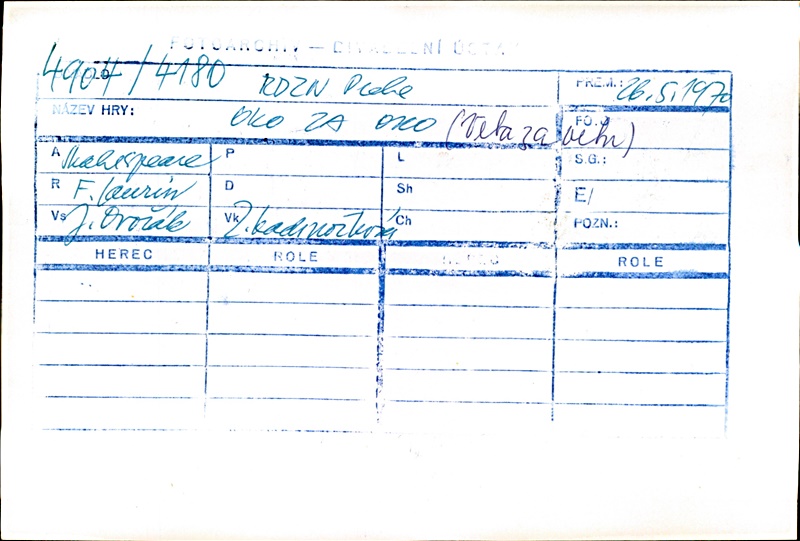 FOTOARCHIV — DIVADELNÍ ÚSTAV
4904/4180 KDZN Praha PREM.: 26.5.1970
NÁZEV HRY: OKO ZA OKO (Veta za vetu) FO.:
A Shakespeare P L S.G.:
R F. Laurin D Sh E/
Vs J. Dvořák Vk Ch POZN.:
HEREC ROLE HEREC ROLE